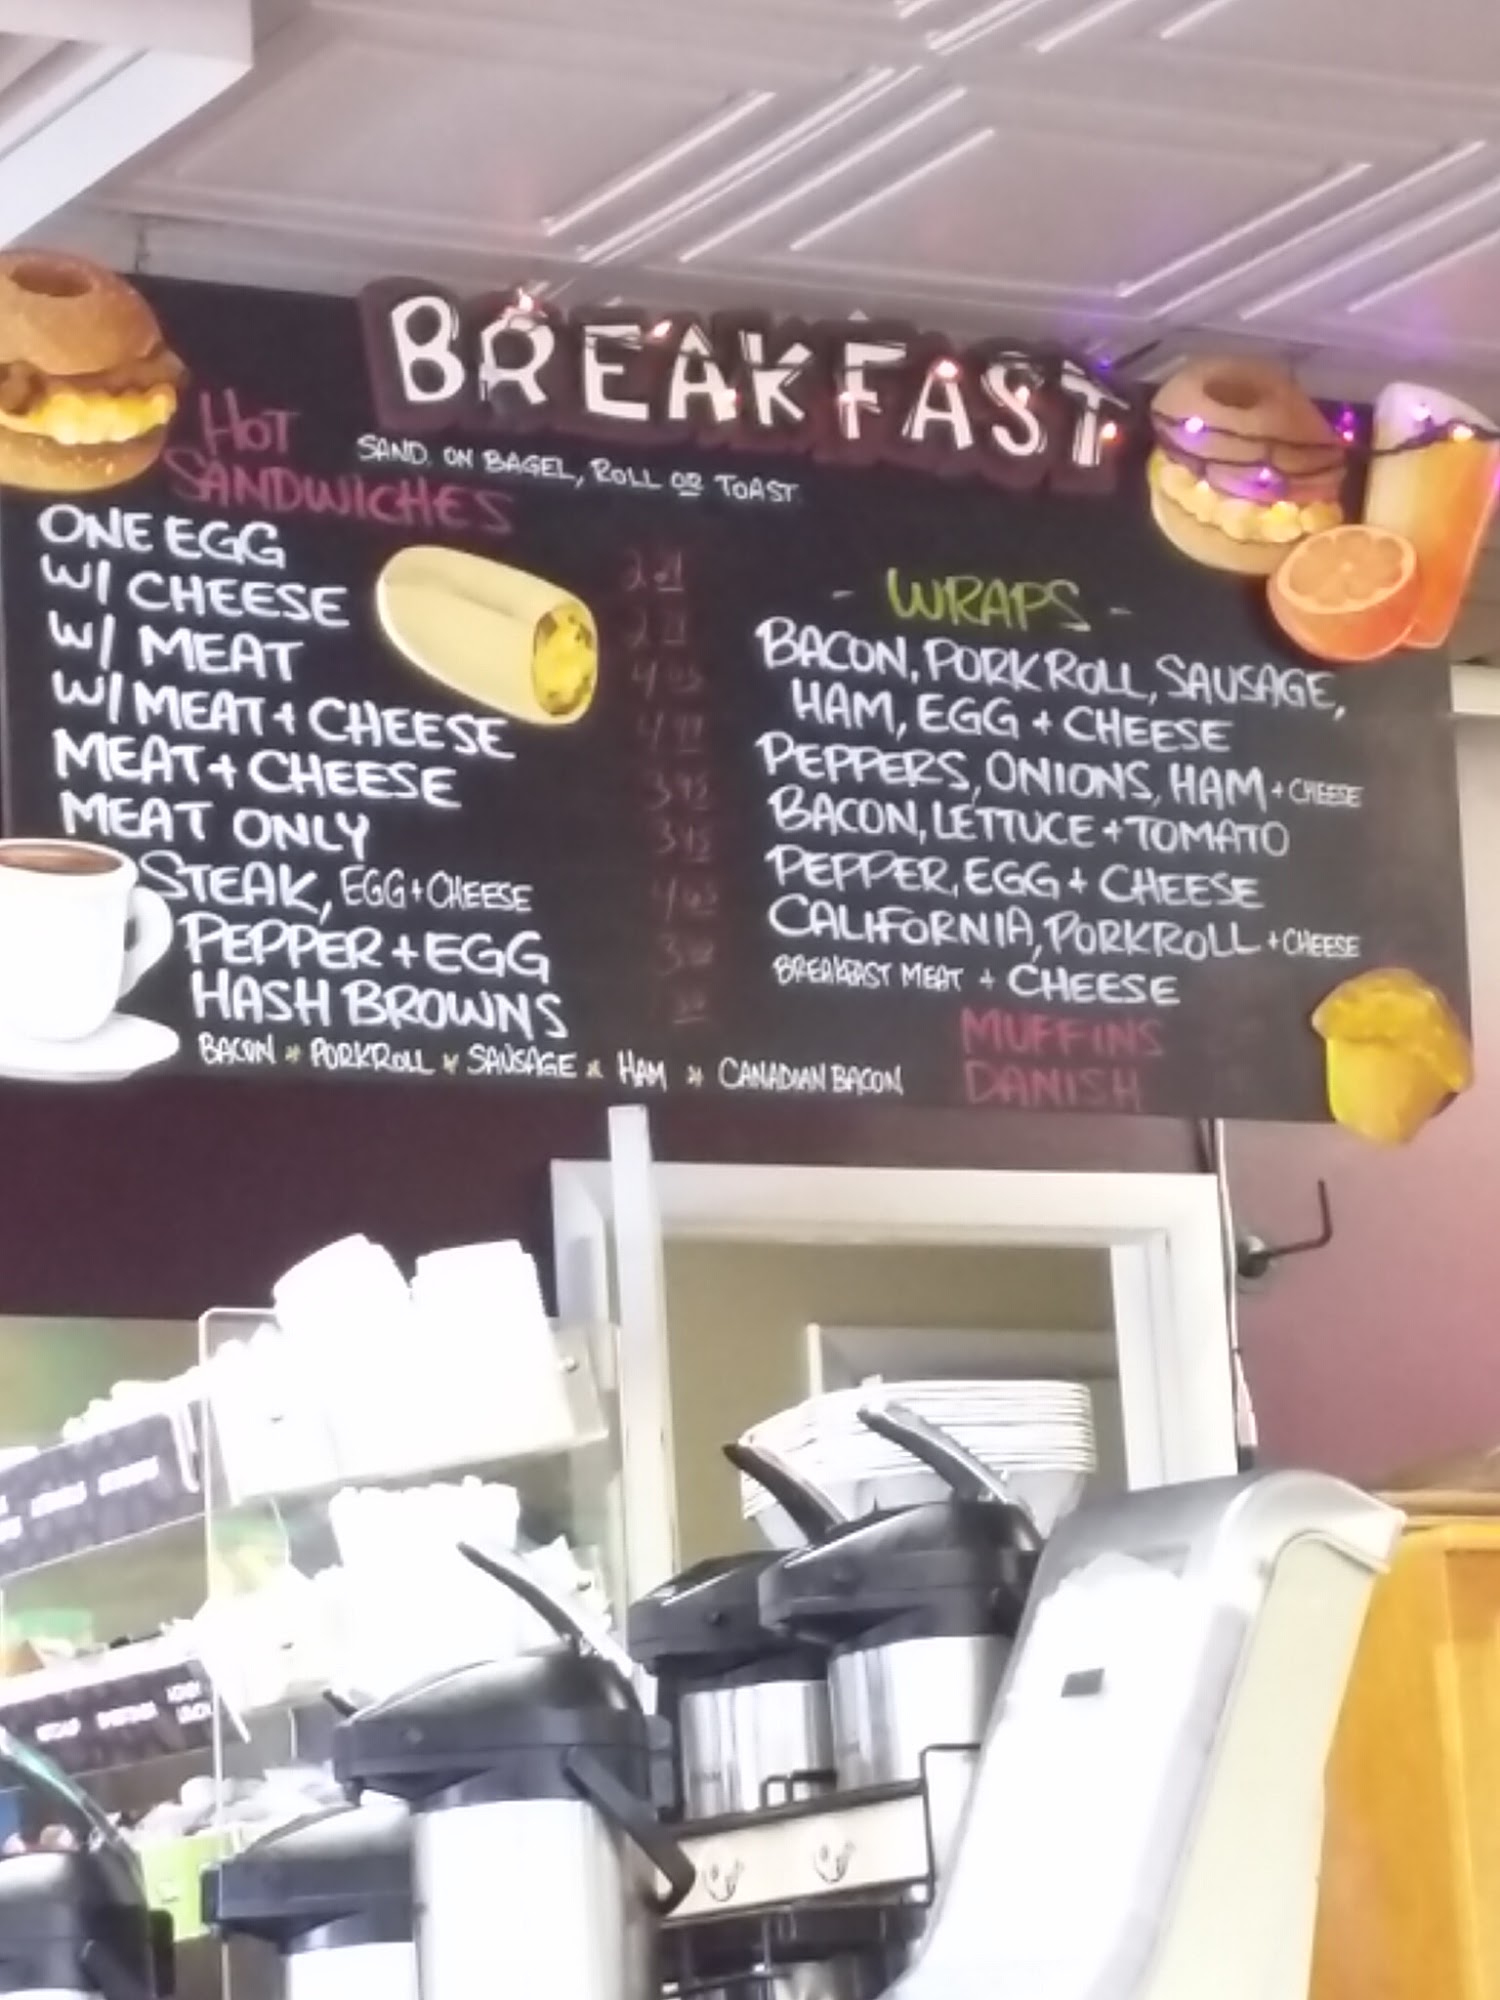 BREAKFAST
HOT
SANDWICHES
SAND. ON BAGEL, ROLL OR TOAST
ONE EGG
W/ CHEESE
W/ MEAT
W/ MEAT + CHEESE
MEAT + CHEESE
MEAT ONLY
STEAK, EGG + CHEESE
PEPPER + EGG
HASH BROWNS
BACON * PORKROLL * SAUSAGE * HAM * CANADIAN BACON
- WRAPS -
BACON, PORK ROLL, SAUSAGE,
HAM, EGG + CHEESE
PEPPERS, ONIONS, HAM + CHEESE
BACON, LETTUCE + TOMATO
PEPPER, EGG + CHEESE
CALIFORNIA, PORKROLL + CHEESE
BREAKFAST MEAT + CHEESE
MUFFINS
DANISH